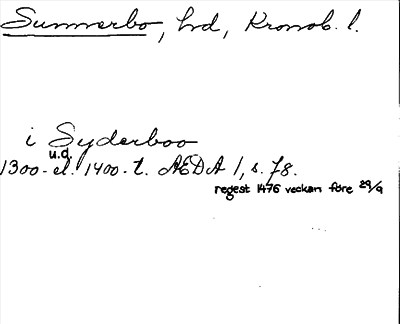 Sunnerbo, hd, Kronob. l.
i Syderboo
u.d.
1300- el. 1400-t. AEDA 1, s. 78.
regest 1476 veckan före 29/9